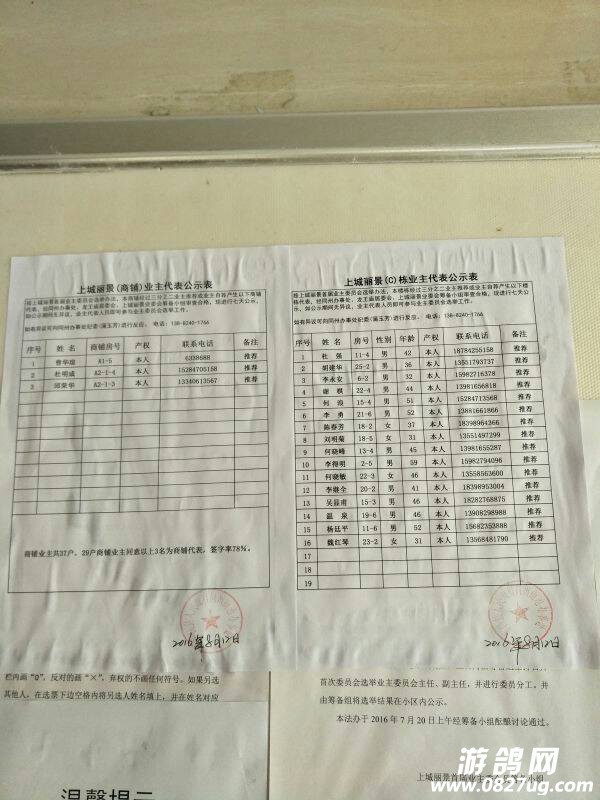 上城丽景(商铺)业主代表公示表
按上城丽景首届业主委员会选举办法，本商铺经过三分之二业主推荐或业主自荐产生以下商铺
代表，经同州办事处、龙王庙居委会、上城丽景业委会筹备小组审查合格，现进行七天公
示，如公示期间无异议，业主代表人员即可参与业主委员会选举工作。
如有异议可向同州办事处纪委(蒲玉芳)进行反应。 电话：138-8240-1766
序号 姓名 商铺房号 产权 联系电话 备注
1 曹华琼 A1-5 本人 6339688 推荐
2 杜明成 A2-1-4 本人 15284705158 推荐
3 邱荣华 A2-1-3 本人 13340613567 推荐
商铺业主共37户，29户商铺业主同意以上3名为商铺代表，签字率78%。
2016年8月12日
上城丽景(C)栋业主代表公示表
按上城丽景首届业主委员会选举办法，本楼栋经过三分之二业主推荐或业主自荐产生以下楼
栋代表，经同州办事处、龙王庙居委会、上城丽景业委会筹备小组审查合格，现进行七天公
示，如公示期间无异议，业主代表人员即可参与业主委员会选举工作。
如有异议可向同州办事处纪委(蒲玉芳)进行反应。 电话：138-8240-1766
序号 姓名 房号 性别 年龄 产权 联系电话 备注
1 杜强 11-4 男 42 本人 18784255158 推荐
2 胡建华 25-2 男 36 本人 13551793737 推荐
3 李永安 6-2 男 32 本人 15982716378 推荐
4 谢棋 22-4 男 44 本人 13981656818 推荐
5 何浪 15-4 男 51 本人 15284713568 推荐
6 李勇 21-6 男 52 本人 13881661866 推荐
7 陈春芳 18-2 女 37 本人 18398964366 推荐
8 刘明菊 18-5 女 31 本人 13551497299 推荐
9 何晓峰 13-4 男 45 本人 13981655287 推荐
10 李得明 2-5 男 59 本人 15982794096 推荐
11 何晓敏 22-3 女 46 本人 13558563600 推荐
12 李继全 20-2 男 41 本人 18398953004 推荐
13 吴显甫 15-3 男 46 本人 18282768875 推荐
14 温泉 19-6 男 46 本人 13908298988 推荐
15 杨廷平 11-6 男 52 本人 15682353888 推荐
16 魏红琴 23-2 女 31 本人 13568481790 推荐
17
18
19
2016年8月12日
栏内画“O”，反对的画“×”，弃权的不画任何符号。如果另选
其他人，在选票下边空格内将另选人姓名填上，并在姓名对应
温馨提示
首次委员会选举业主委员会主任、副主任，并进行委员分工，并
由筹备组将选举结果在小区内公示。
本法办于2016年7月20日上午经筹备小组酝酿讨论通过。
上城丽景首届业主委员会筹备小组
游鸽网
www.0827ug.com